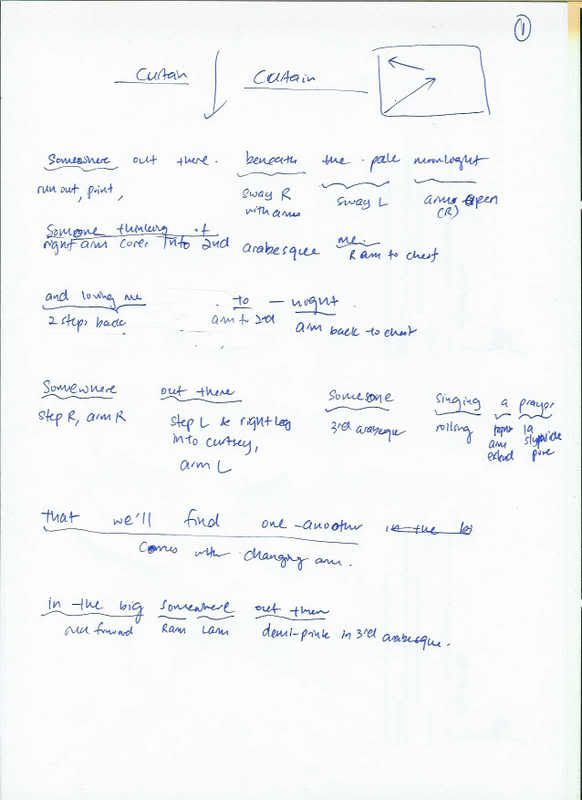 1
Curtain Curtain
Somewhere out there. beneath the pale moonloght
run out, point, sway R sway L arms open
with arms (R)
Someone thinking of me
right arm cover into 2nd arabesque R arm to chest
and loving me to - night
2 steps back arm to 2nd arm back to chest
Somewhere out there somesone singing a prayer
step R, arm R step L & right leg 3rd arabesque rolling
into curtsey, arm
arm L extend
that we'll find one-anoother in the
Comes with changing arm.
in the big somewhere out there
run forward R arm L arm demi-pointe in 3rd arabesque.